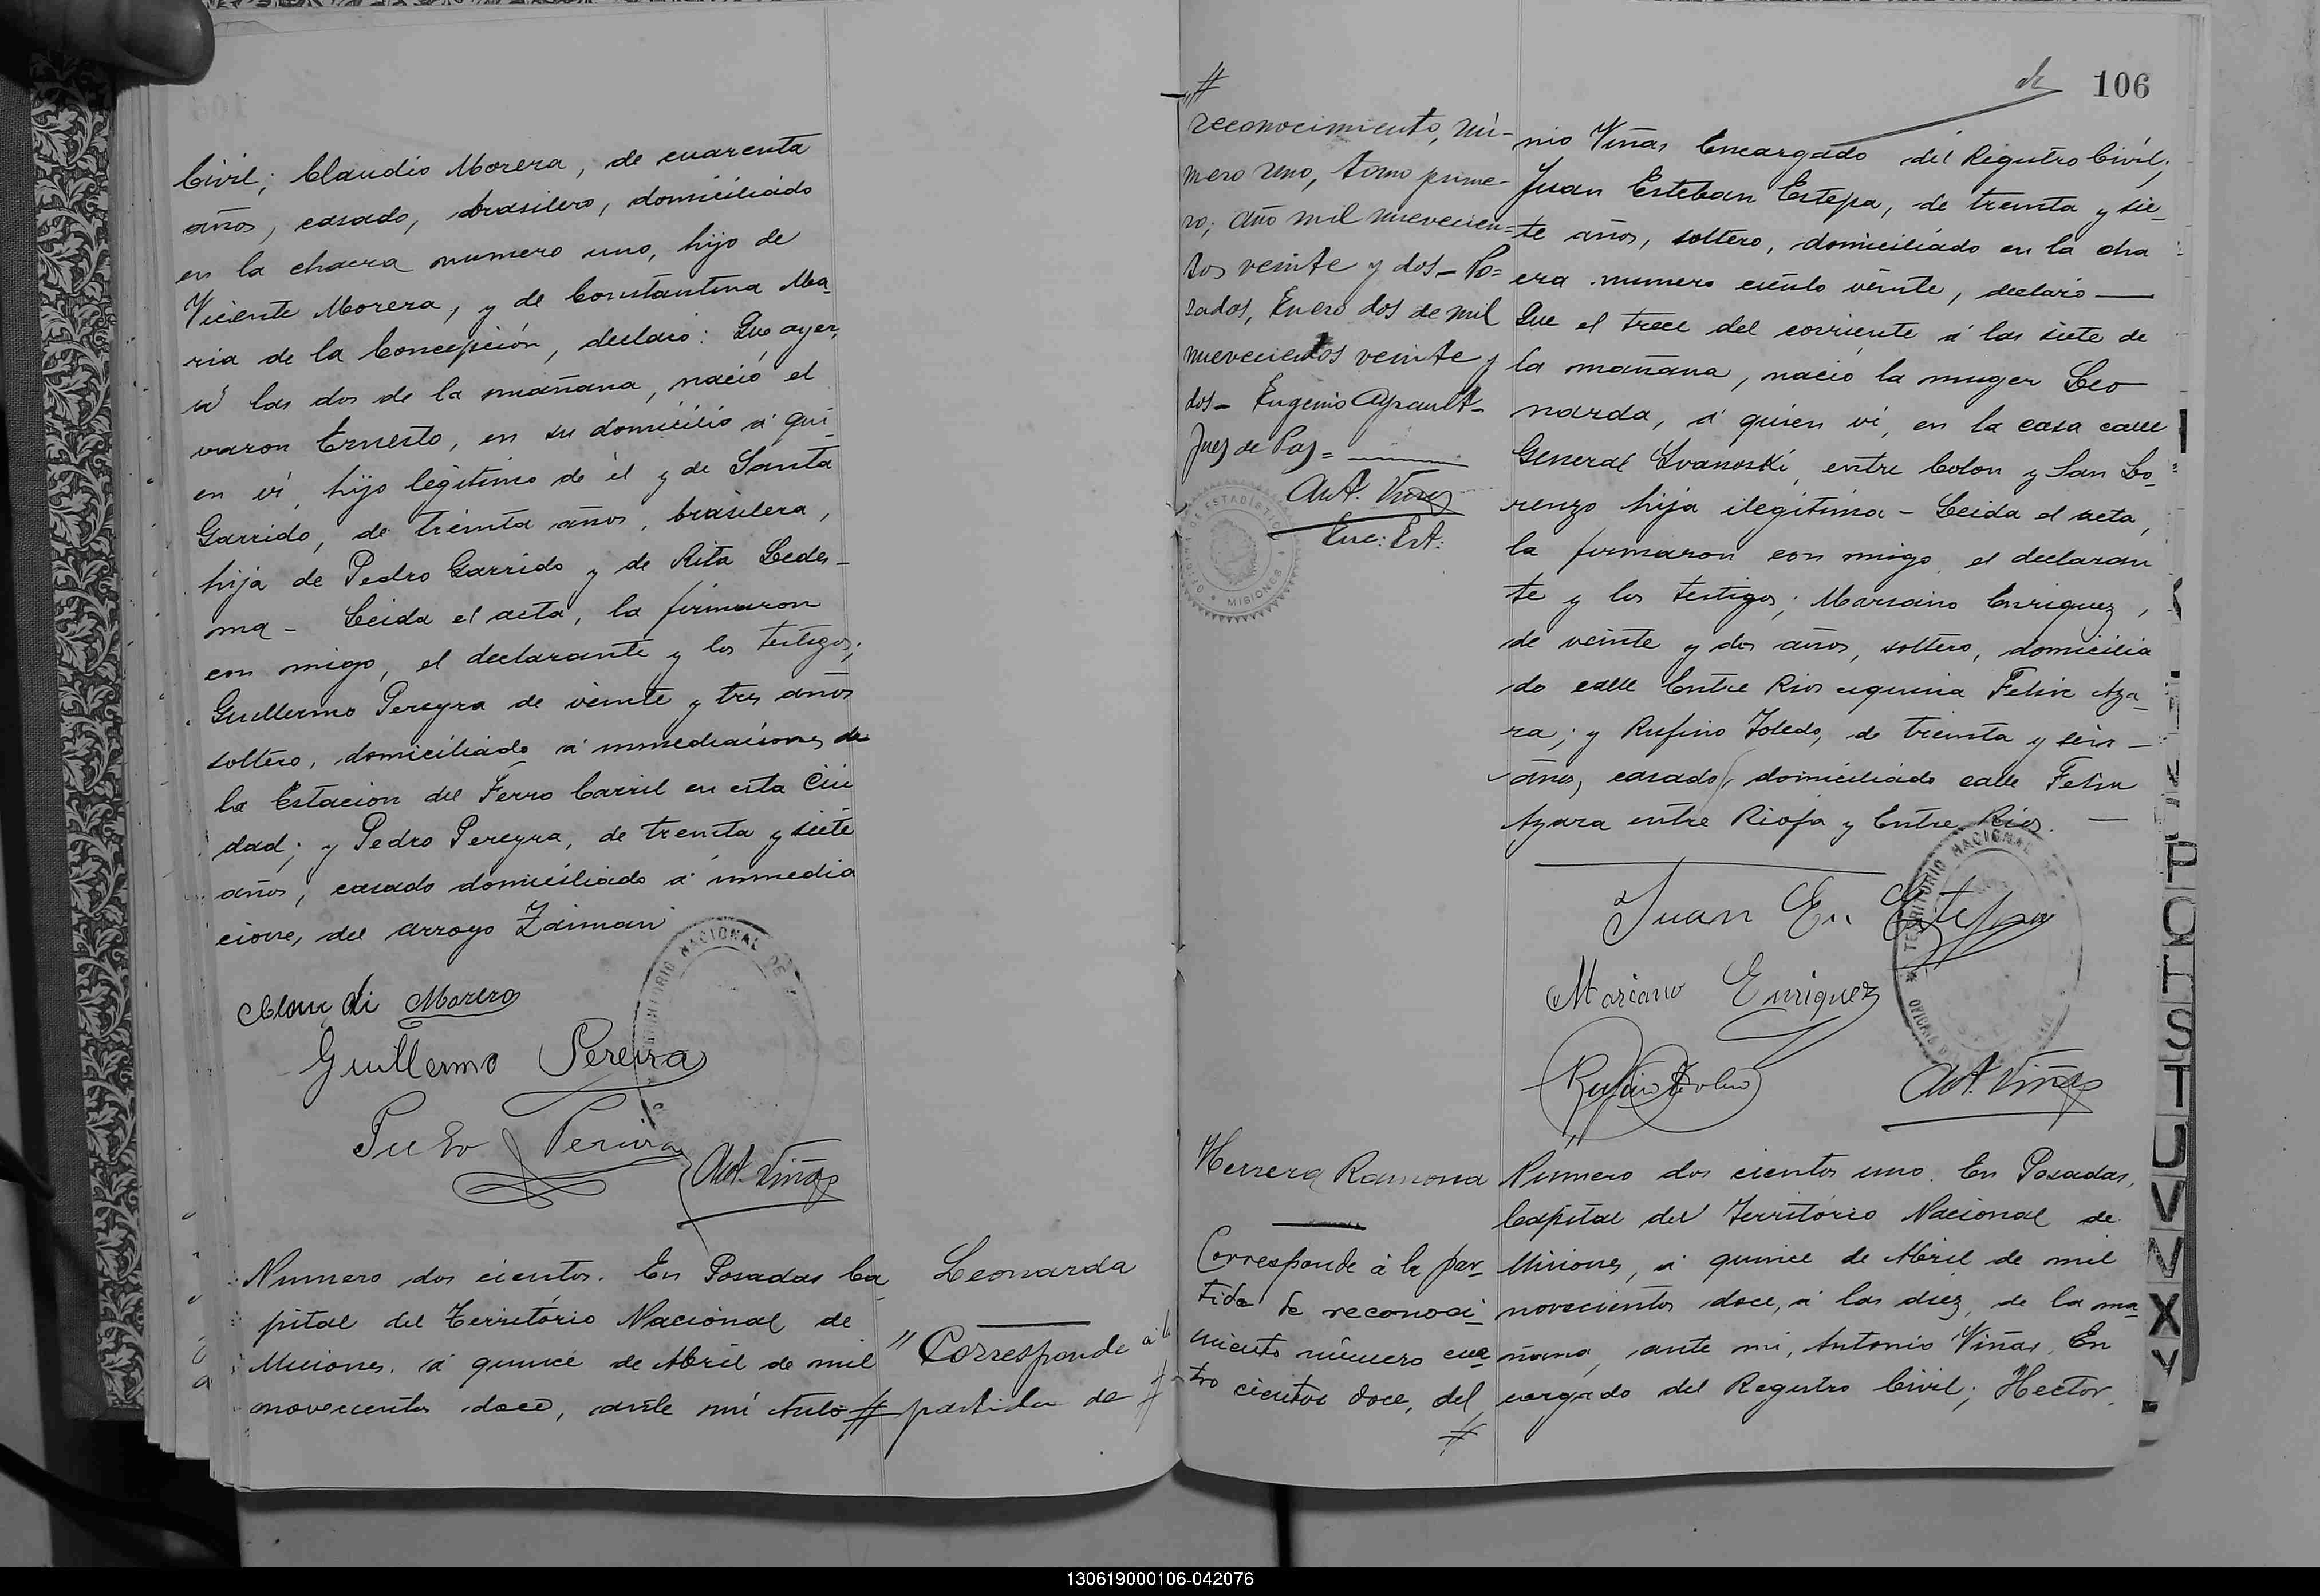 Civil; Claudio Morera, de cuarenta
años, casado, brasilero, domiciliado
en la chacra numero uno, hijo de
Vicente Morera, y de Constantina Ma-
ria de la Concepción, declaró: Que ayer,
á las dos de la mañana, nació el
varon Ernesto, en su domicilio á qui-
en ví, hijo legitimo de él y de Santa
Garrido, de treinta años, brasilera,
hija de Pedro Garrido y de Rita Ledes-
ma - Leida el acta, la firmaron
con migo, el declarante y los testigos;
Guillermo Pereyra de veinte y tres años
soltero, domiciliado á inmediaciones de
la Estacion del Ferro Carril en esta Ciu
dad; y Pedro Pereyra, de treinta y siete
años, casado domiciliado á inmedia
cione, del arroyo Zaiman
Morera
Guillermo Pereira
Pereira
Ant. Viñas
TERRITORIO NACIONAL DE
Numero dos cientos. En Posadas Ca-
pital del Territorio Nacional de
Misiones. á quince de Abril de mil
novecientos doce, ante mí Anto
Leonarda
" Corresponde a la
# partida de #
106
#
reconocimiento, nú-
mero uno, tomo prime-
ro; año mil novecien=
tos veinte y dos - Po=
sadas, Enero dos de mil
novecientos veinte y
dos - Eugenio Ayrault -
Juez de Paz =
Ant. Viñas
Enc: Est:
ESTADISTICA
MISIONES
nio Viñas Encargado del Registro Civil;
Juan Esteban Estepa, de treinta y sie-
te años, soltero, domiciliado en la cha
cra numero ciento veinte, declaró
Que el trece del corriente á las siete de
la mañana, nació la muger Leo
narda, á quien ví, en la casa calle
General Ivanoski, entre Colon y San Lo-
renzo hija ilegitima - Leida el acta,
la firmaron con migo el declaran
te y los testigos; Marsano Enriquez,
de veinte y dos años, soltero, domicilia
do calle Entre Rios esquina Felix Aza-
ra; y Rufino Toledo, de treinta y seis -
años, casado, domiciliado calle Felix
Azara entre Rioja y Entre Rios. -
Juan Es. Estepa
Mariano Enriquez
Rufino Toledo
Ant. Viñas
TERRITORIO NACIONAL
Herrera Ramona
Corresponde á la par-
tida de reconoci-
miento número cua-
tro cientos doce, del
#
Numero dos cientos uno. En Posadas,
Capital del Territorio Nacional de
Misiones, á quince de Abril de mil
novecientos doce, á las diez, de la ma-
ñana, ante mi, Antonio Viñas, En
cargado del Registro Civil; Hector,
P
Q
S
T
U
V
X
Y
130619000106-042076